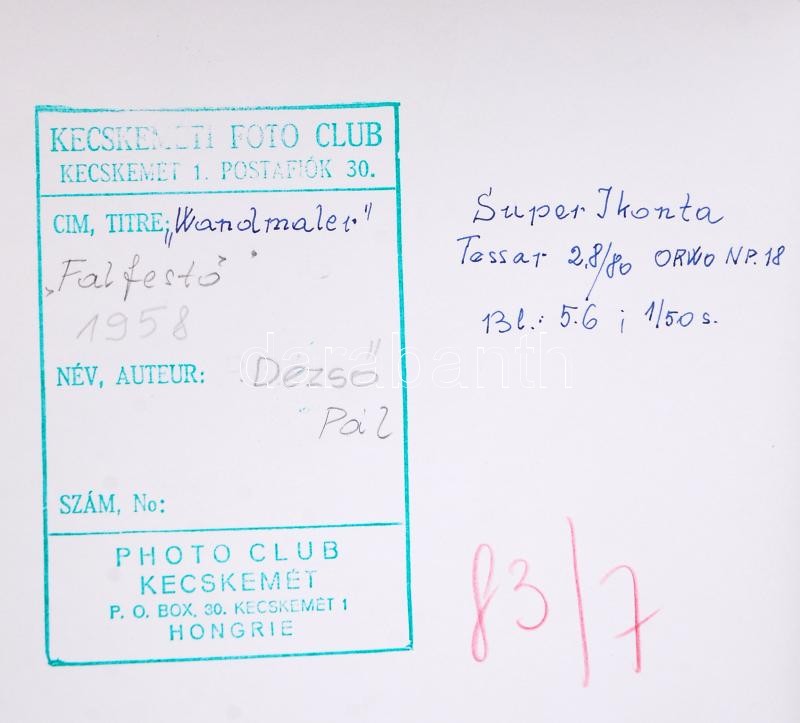 KECSKEMÉTI FOTO CLUB
KECSKEMÉT 1. POSTAFIÓK 30.
CIM, TITRE: „Wandmaler"
„Falfestő"
1958
NÉV, AUTEUR: Dezső
Pál
SZÁM, No:
PHOTO CLUB
KECSKEMÉT
P. O. BOX. 30. KECSKEMÉT 1
HONGRIE
Super Ikonta
Tessar 2,8/80 ORWO NP.18
Bl.: 5.6 ; 1/50 s.
83/7
darabanth